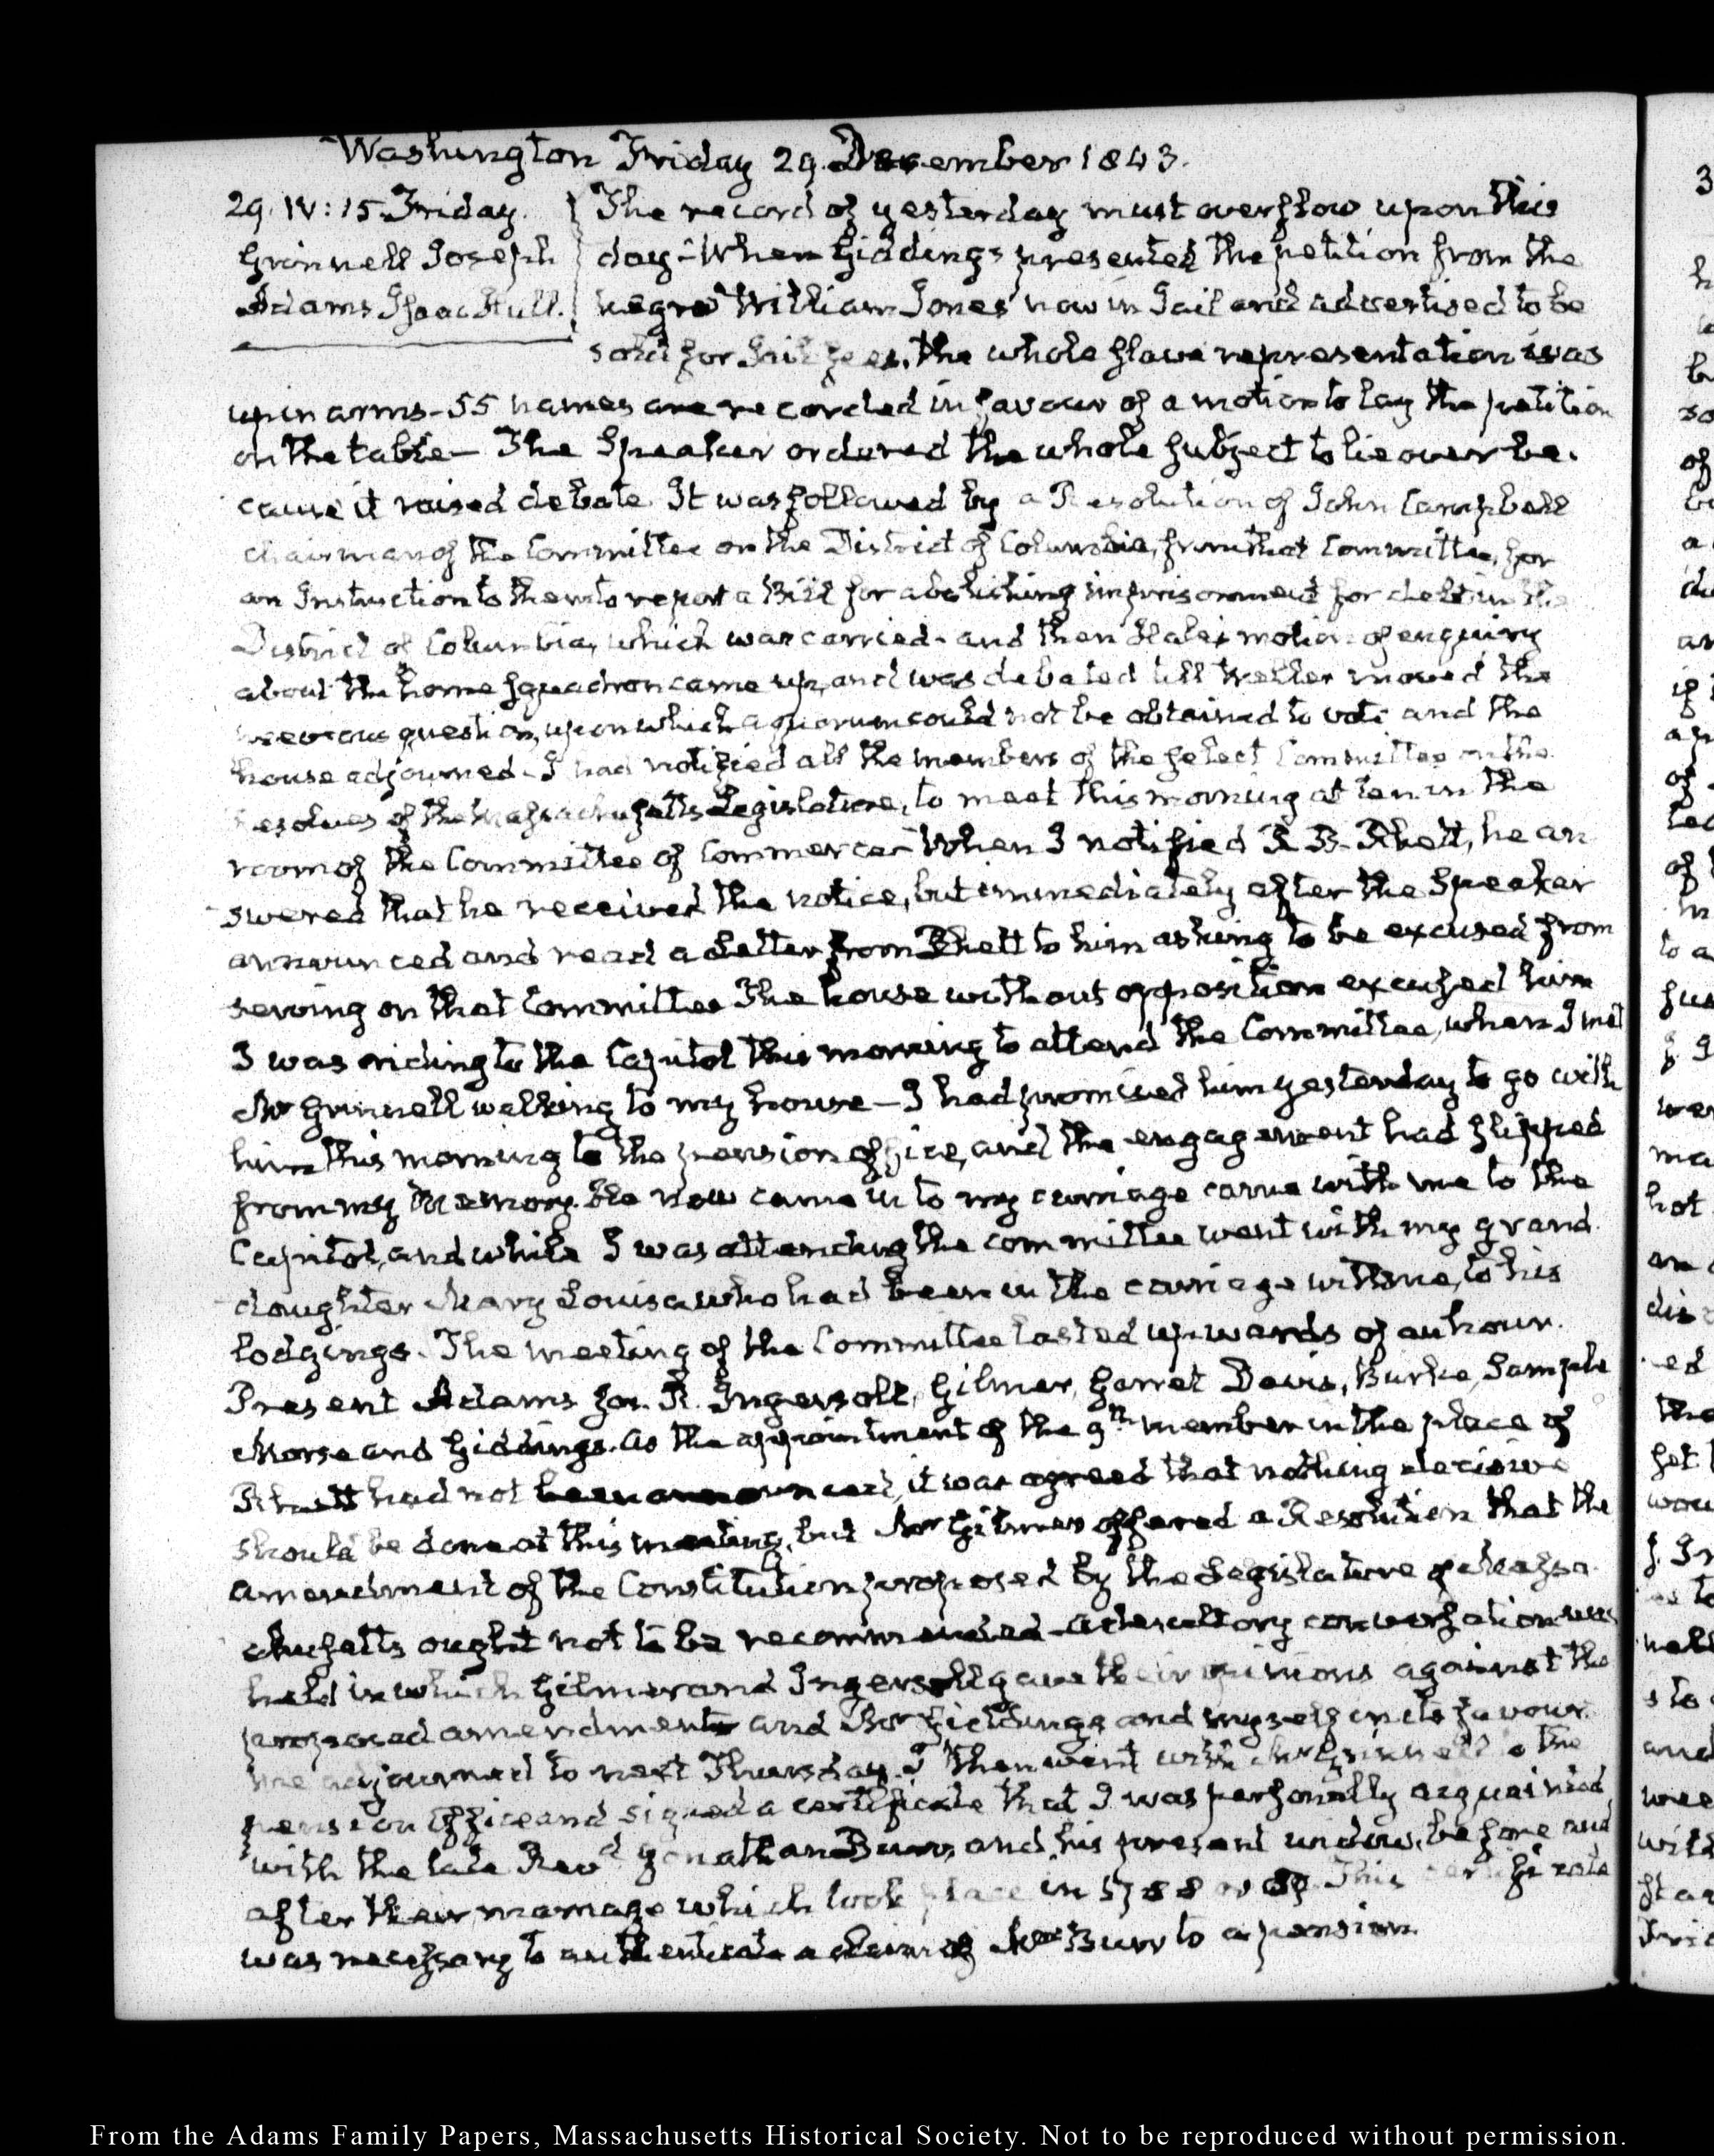 Washington Friday 29. December 1843.
29. IV:15. Friday.
Grinnell Joseph
Adams Isaac Hull.
The record of yesterday must overflow upon this
day — When Giddings presented the petition from the
negro William Jones now in Jail and advertised to be
sold for Jail fees, the whole slave representation was
up in arms — 55 names are recorded in favour of a motion to lay the petition
on the table — The Speaker ordered the whole subject to lie over be-
cause it raised debate. It was followed by a Resolution of John Campbell
chairman of the Committee on the District of Columbia, from that Committee, for
an Instruction to them to report a Bill for abolishing imprisonment for debt in the
District of Columbia, which was carried — and then Hale's motion of enquiry
about the home squadron came up, and was debated till Weller moved the
previous question, upon which a quorum could not be obtained to vote and the
house adjourned — I had notified all the members of the select Committee on the
resolves of the Massachusetts Legislature, to meet this morning at ten in the
room of the Committee of Commerce — When I notified R. B. Rhett, he an-
swered that he received the notice, but immediately after the Speaker
announced and read a Letter from Rhett to him asking to be excused from
serving on that Committee The house without opposition excused him
I was riding to the Capitol this morning to attend the Committee, when I met
Mr Grinnell walking to my house — I had promised him yesterday to go with
him this morning to the pension office, and the engagement had slipped
from my memory. He now came in to my carriage came with me to the
Capitol, and while I was attending the committee went with my grand
daughter Mary Louisa who had been in the carriage with me, to his
lodgings. The meeting of the Committee lasted upwards of an hour.
Present Adams Jos. R. Ingersoll, Gilmer, Garret Davis, Burke, Sample
Morse and Giddings. As the appointment of the 9th member in the place of
Rhett had not been announced, it was agreed that nothing decisive
should be done at this meeting, but Mr Gilmer offered a Resolution that the
amendment of the Constitution proposed by the Legislature of Massa-
chusetts ought not to be recommended — a desultory conversation was
held in which Gilmer and Ingersoll gave their opinions against the
proposed amendment and Mr Giddings and myself in its favour.
We adjourned to next Thursday. I then went with Mr Grinnell to the
pension Office and signed a certificate that I was personally acquainted
with the late Revd Jonathan Burr, and his present widow, before and
after their marriage which took place in 1788 or 89. This certificate
was necessary to authenticate a claim of Mrs Burr to a pension.
From the Adams Family Papers, Massachusetts Historical Society. Not to be reproduced without permission.